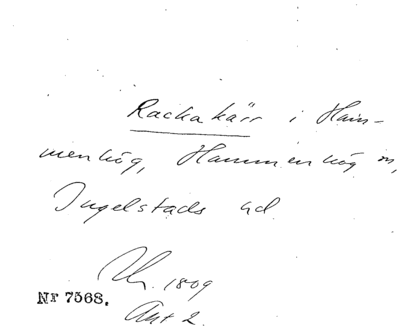 Rackakärr i Ham-
menhög, Hammenhög sn,
Ingelstads hd
1809
Nr 7568.
Akt 2.